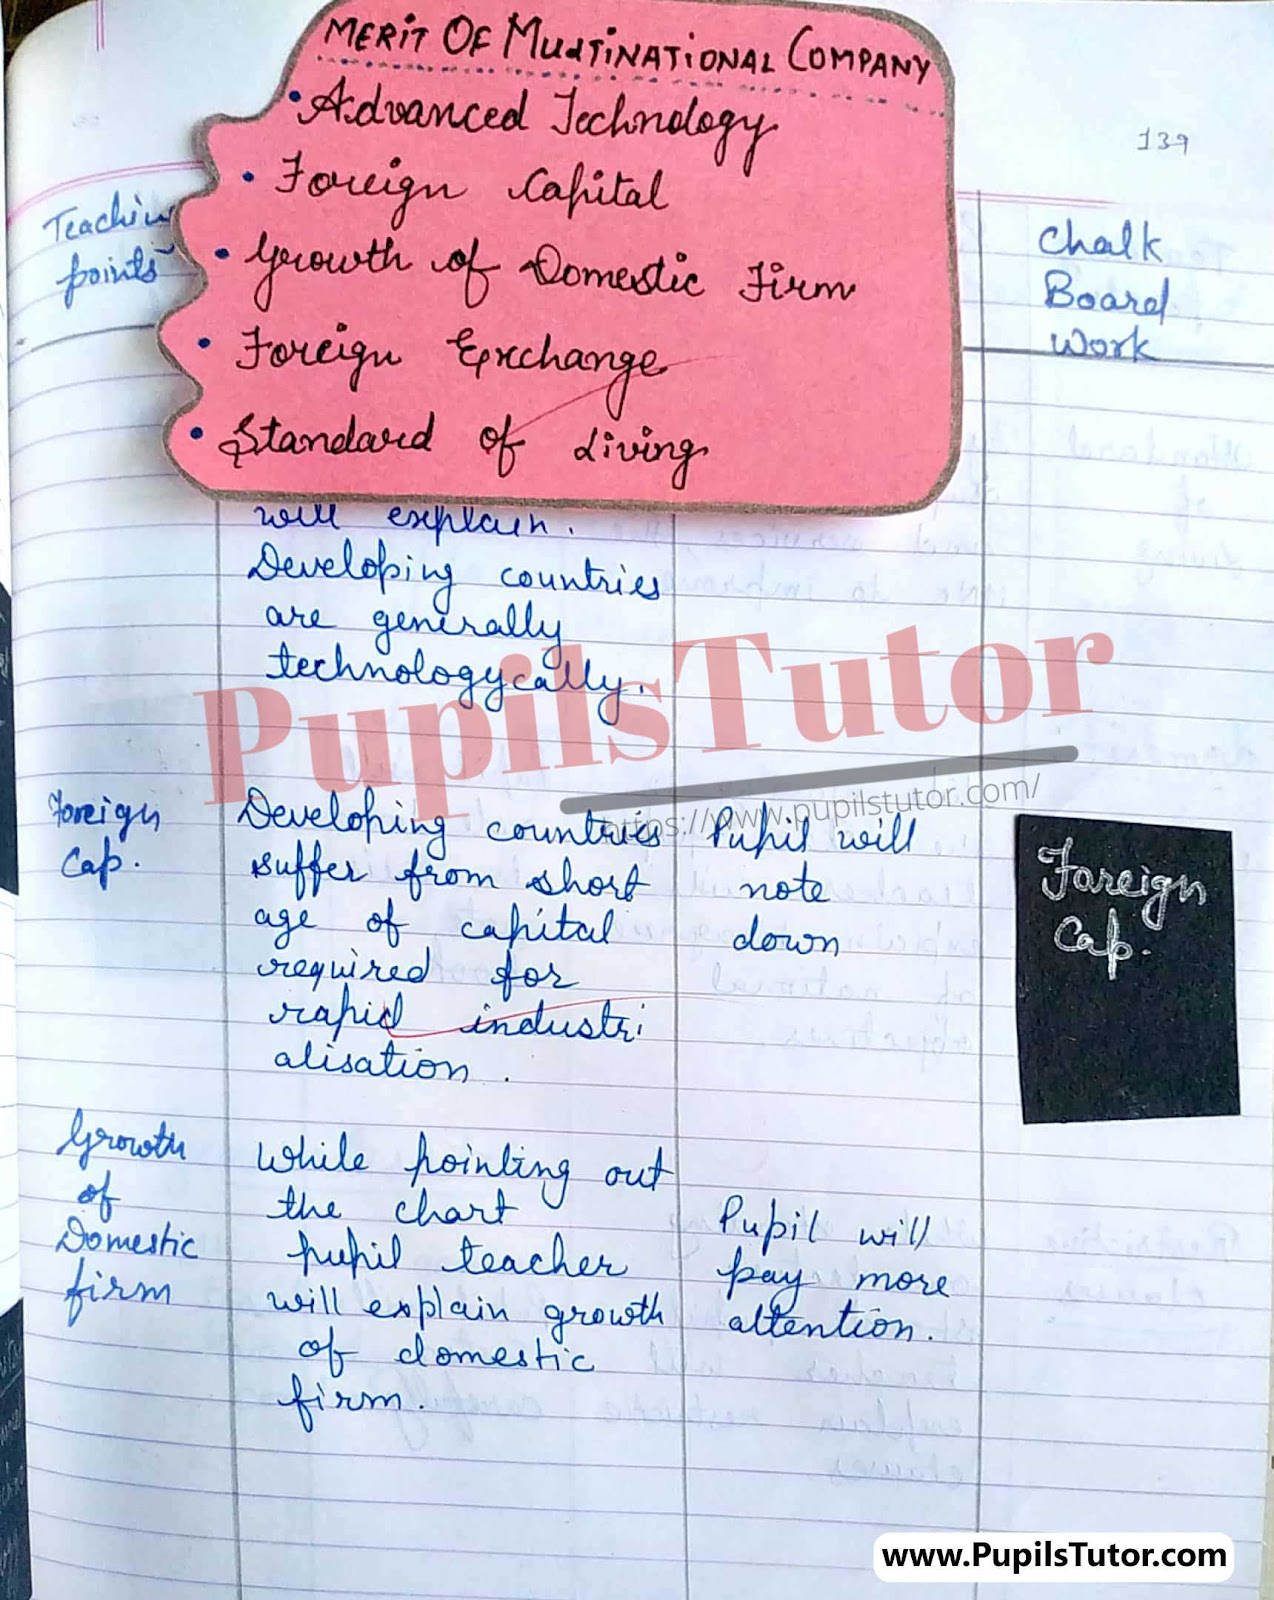 MERIT OF MULTINATIONAL COMPANY
• Advanced Technology
• Foreign Capital
• Growth of Domestic Firm
• Foreign Exchange
• Standard of Living
139
Teachin
points
Chalk
Board
Work
will explain.
Developing countries
are generally
technologycally.
PupilsTutor
https://www.pupilstutor.com/
Foreign
Cap.
Developing countries
suffer from short
age of capital
required for
rapid industri
alisation.
Pupil will
note
down
Foreign
Cap.
Growth
of
Domestic
firm
While pointing out
the chart
pupil teacher
will explain growth
of domestic
firm.
Pupil will
pay more
attention.
www.PupilsTutor.com